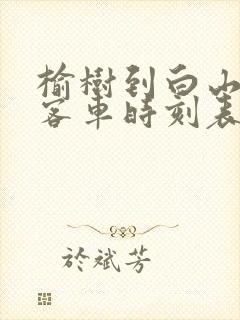 榆樹到白山
客車時刻表
於斌芳